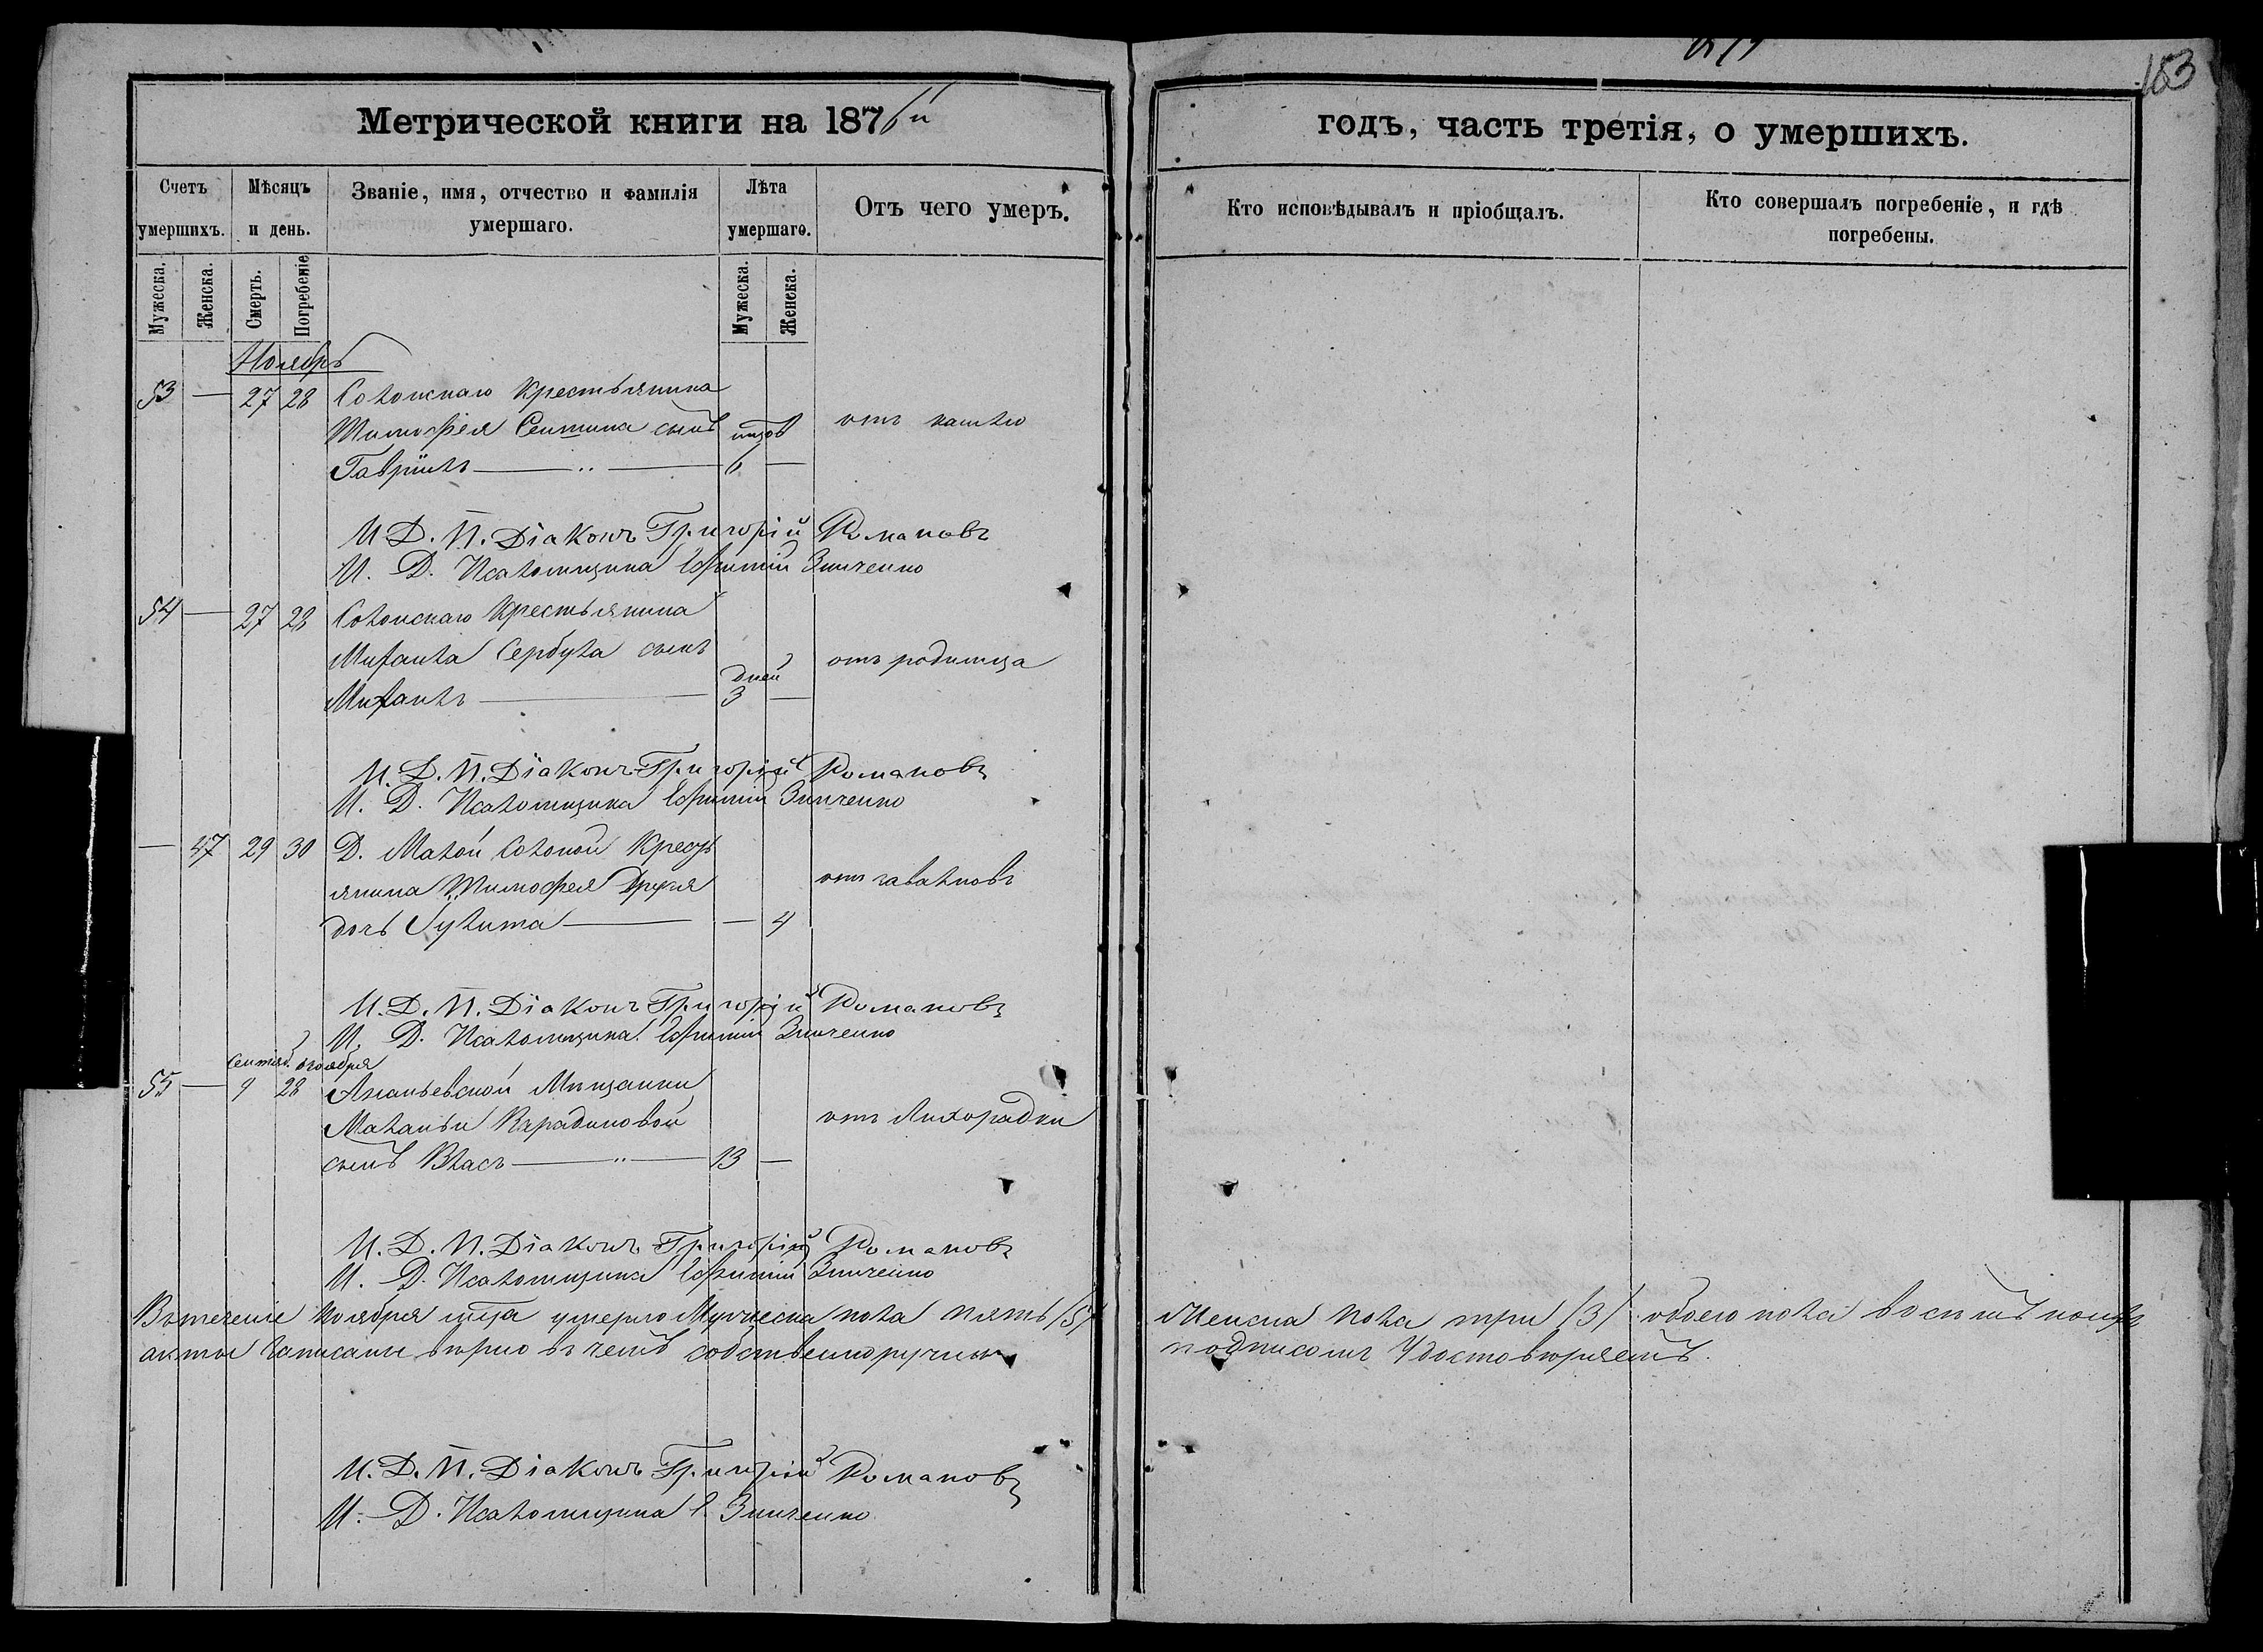 183
Метрической книги на 1876й
годъ, часть третія, о умершихъ.
Счетъ умершихъ.
Мѣсяцъ и день.
Званіе, имя, отчество и фамилія умершаго.
Лѣта умершаго.
Отъ чего умеръ.
Кто исповѣдывалъ и пріобщалъ.
Кто совершалъ погребеніе, и гдѣ погребены.
Мужеска.
Женска.
Смерть.
Погребеніе
Мужеска.
Женска.
Ноябрь
53 — 27 28 Солонскаго Крестьянина
Тимофея Сентина сынъ мцов отъ кашлю
Гавріилъ — " — 6 —
И. Д. П. Діаконъ Григорій Романовъ
И. Д. Псаломщика Ефимій Зинченко
54 — 27 28 Солонскаго Крестьянина
Михаила Сербула сынъ отъ родимца
дней
Михаилъ — 3 —
И. Д. П. Діаконъ Григорій Романовъ
И. Д. Псаломщика Ефимій Зинченко
— 47 29 30 Д. Малой Солоной Кресть
янина Тимофея отъ
дочь Гулита — — 4
И. Д. П. Діаконъ Григорій Романовъ
И. Д. Псаломщика Ефимій Зинченко
Сентяб. ноября
55 — 9 28 Ананьевской Мѣщанки
Маланьи Карадиновой отъ Лихорадки
сынъ Власъ — " — 13 —
И. Д. П. Діаконъ Григорій Романовъ
И. Д. Псаломщика Ефимій Зинченко
Въ теченіе Ноября мца умерло Мужеска пола пять /5/ Женска пола три /3/ обоего пола восемь
акты записаны вѣрно въ чемъ собственноручнымъ подписомъ Удостовѣряемъ.
И. Д. П. Діаконъ Григорій Романовъ
И. Д. Псаломщика Е. Зинченко